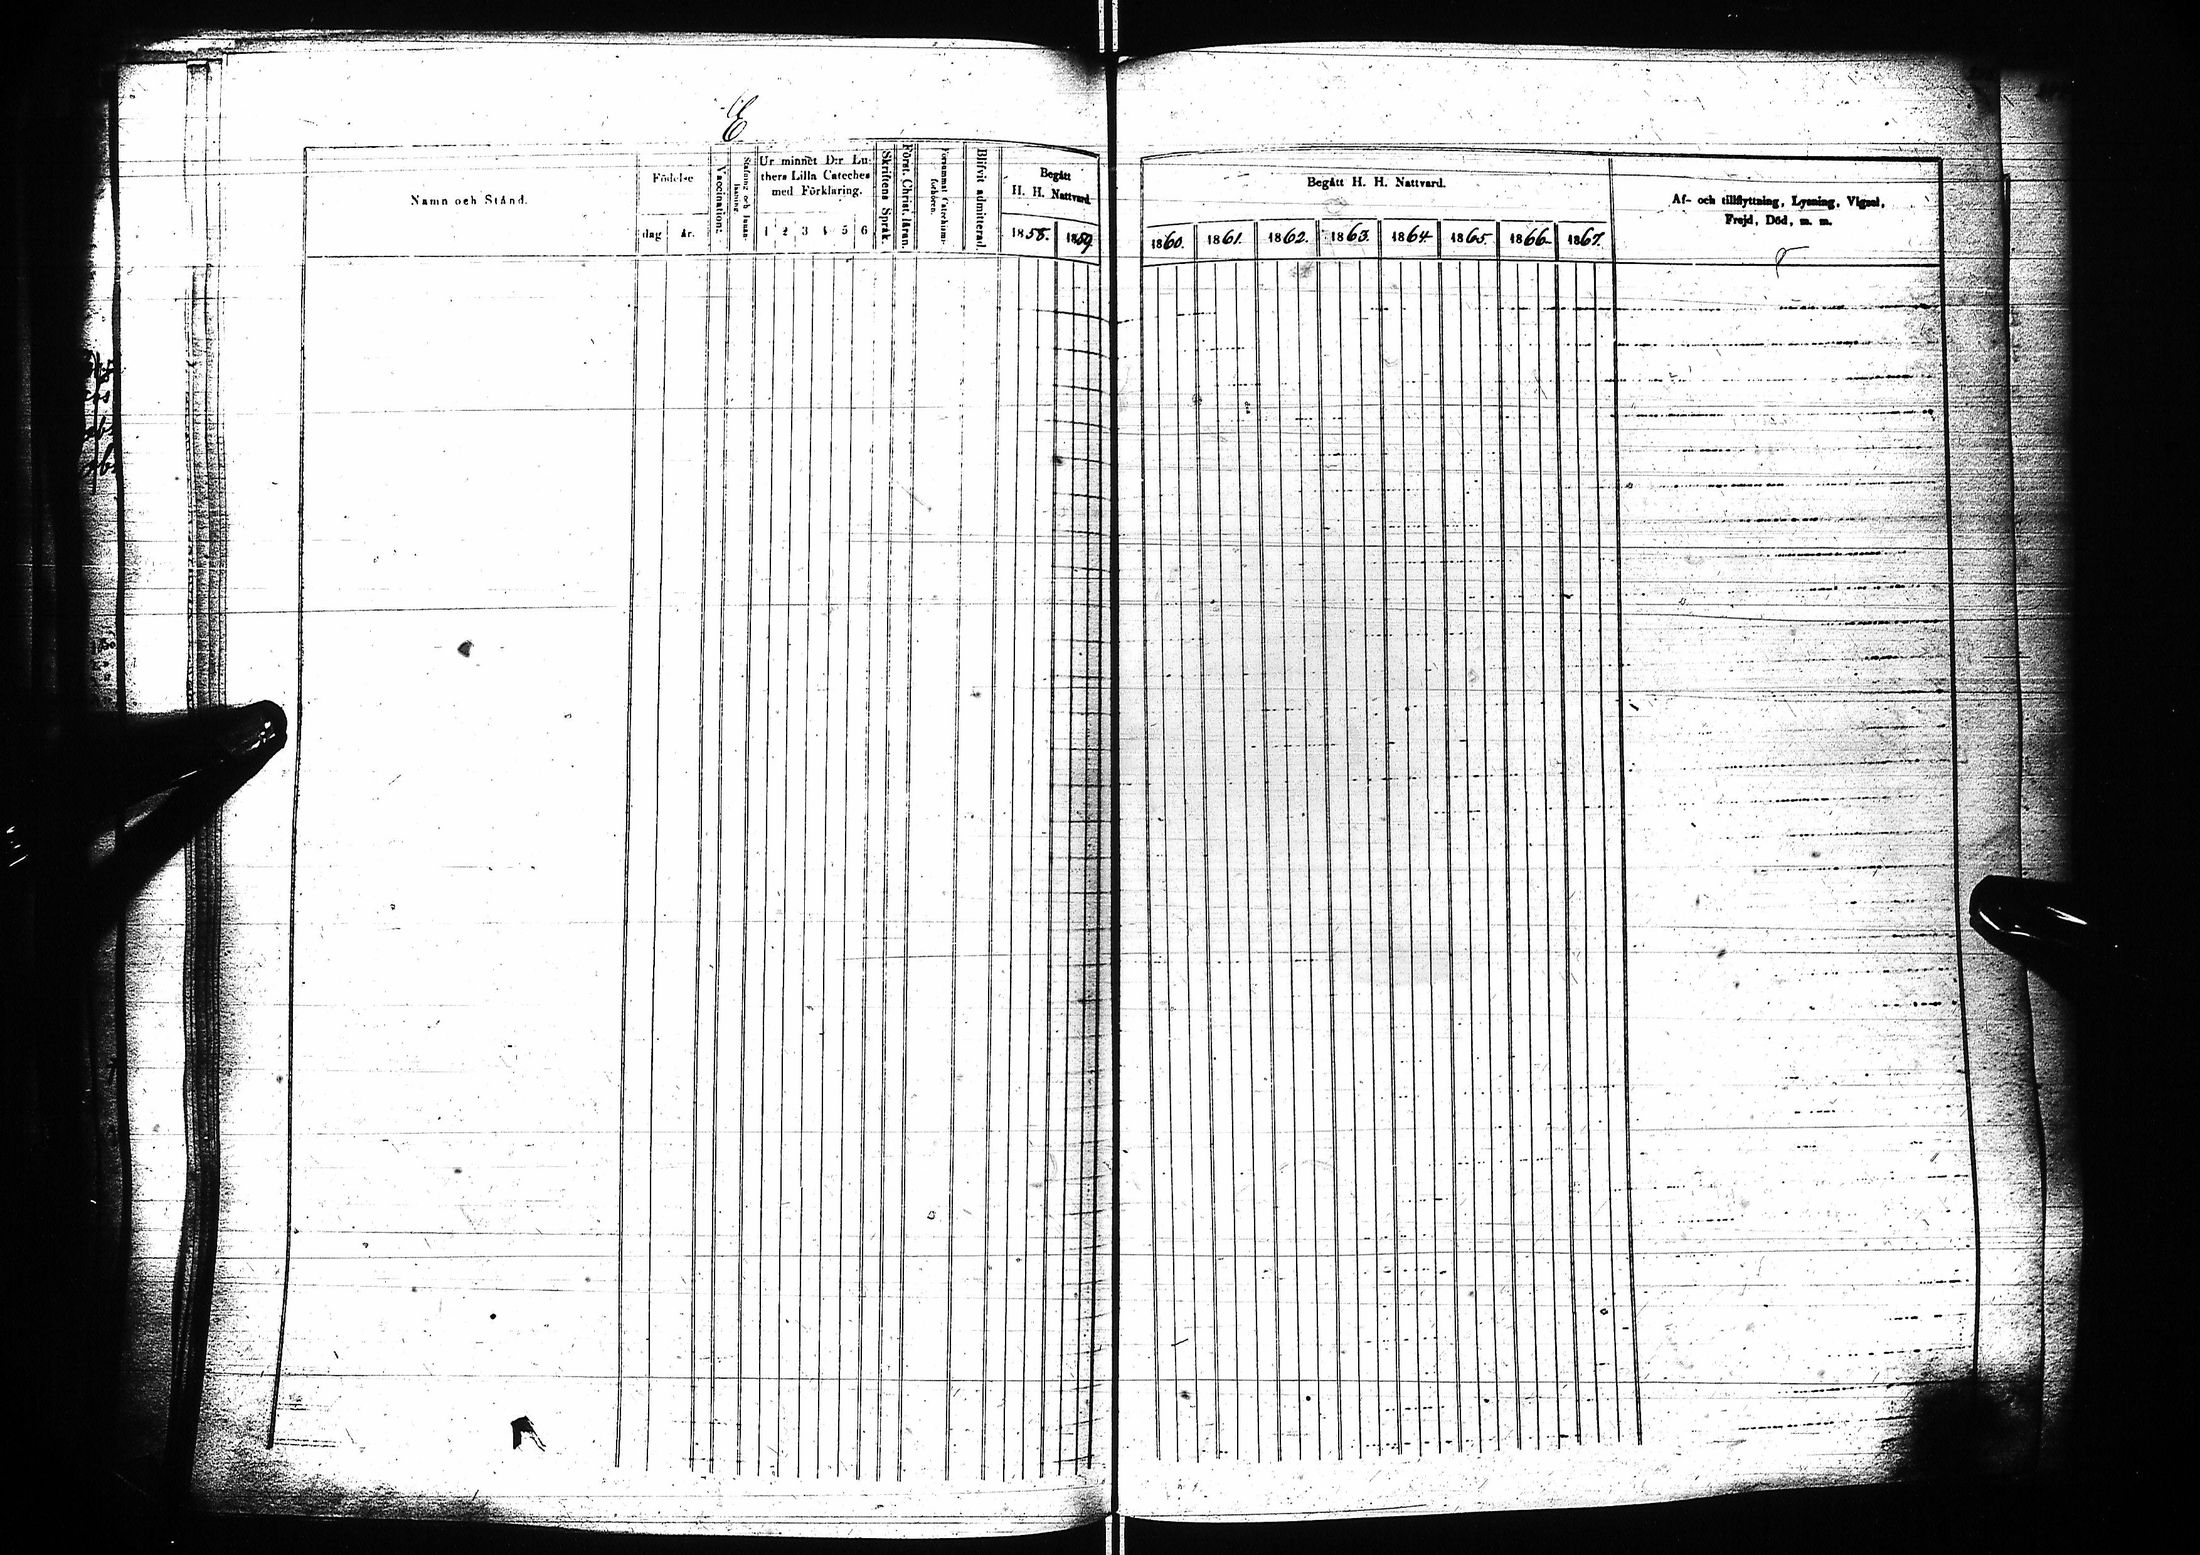 E
Namn och Stånd.
Födelse
dag
år.
Vaccination:
Stafning och Innanläsning.
Ur minnet D:r Lu-
thers Lilla Cateches
med Förklaring.
1 2 3 4 5 6
Skriftens Språk.
Först. Christ. läran.
Försummat Catechismi-
förhören.
Blifvit admitterad.
Begått
H. H. Nattvard.
1858. 1859.
Begått H. H. Nattvard.
1860. 1861. 1862. 1863. 1864 1865. 1866. 1867.
Af- och tillflyttning, Lysning, Vigsel,
Frejd, Död, m. m.